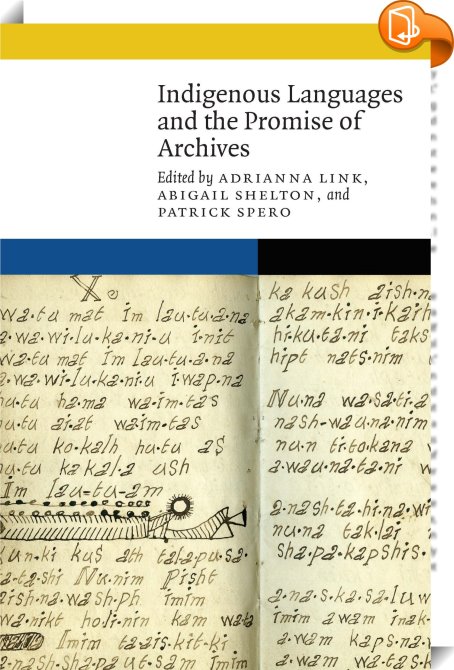 Indigenous Languages
and the Promise of
Archives
Edited by ADRIANNA LINK,
ABIGAIL SHELTON, and
PATRICK SPERO
wa·tu mat im lau·tu·a·na
a·wa·wi·lu·ka·ni·u i·nit
wa·tu mat Im lau·tu·a·na
a·wa·wi·lu·ka·ni·u i·wap·na
hu·tu ha·ma wa·im·tas
hu·tu ai·at wa·im·tas
hu·tu ko·kalh hu·tu as
hu·tu ka kal·a ush
Im lau-tu-am
kun·ki kus ath tala·pu·sa·
a·ta·shi Nu·nim Pisht
aish·na·wash·ph imim
wa·nikt ho·li·nin kam wata
Imim ta·ais·kit·ki
a·nash·sha·pa ut·sam imim
ka kush aish·n
akam·kin·i·kaih
hi·ku·ta·ni taks
hipt nats·nim
Nu·na wa·sa·ti·a
nash·wa·u·na·nim
nu·n ti·to·kana
a·wau·na·ta·ni w
a·nash·ta·hi·na·wi
nu·na tak·lai
sha·pa·kap·shis·
a·na·s·ka·sa·luw
imim awam inak·
a·wam kaps·na·
a·wam wa·tas·